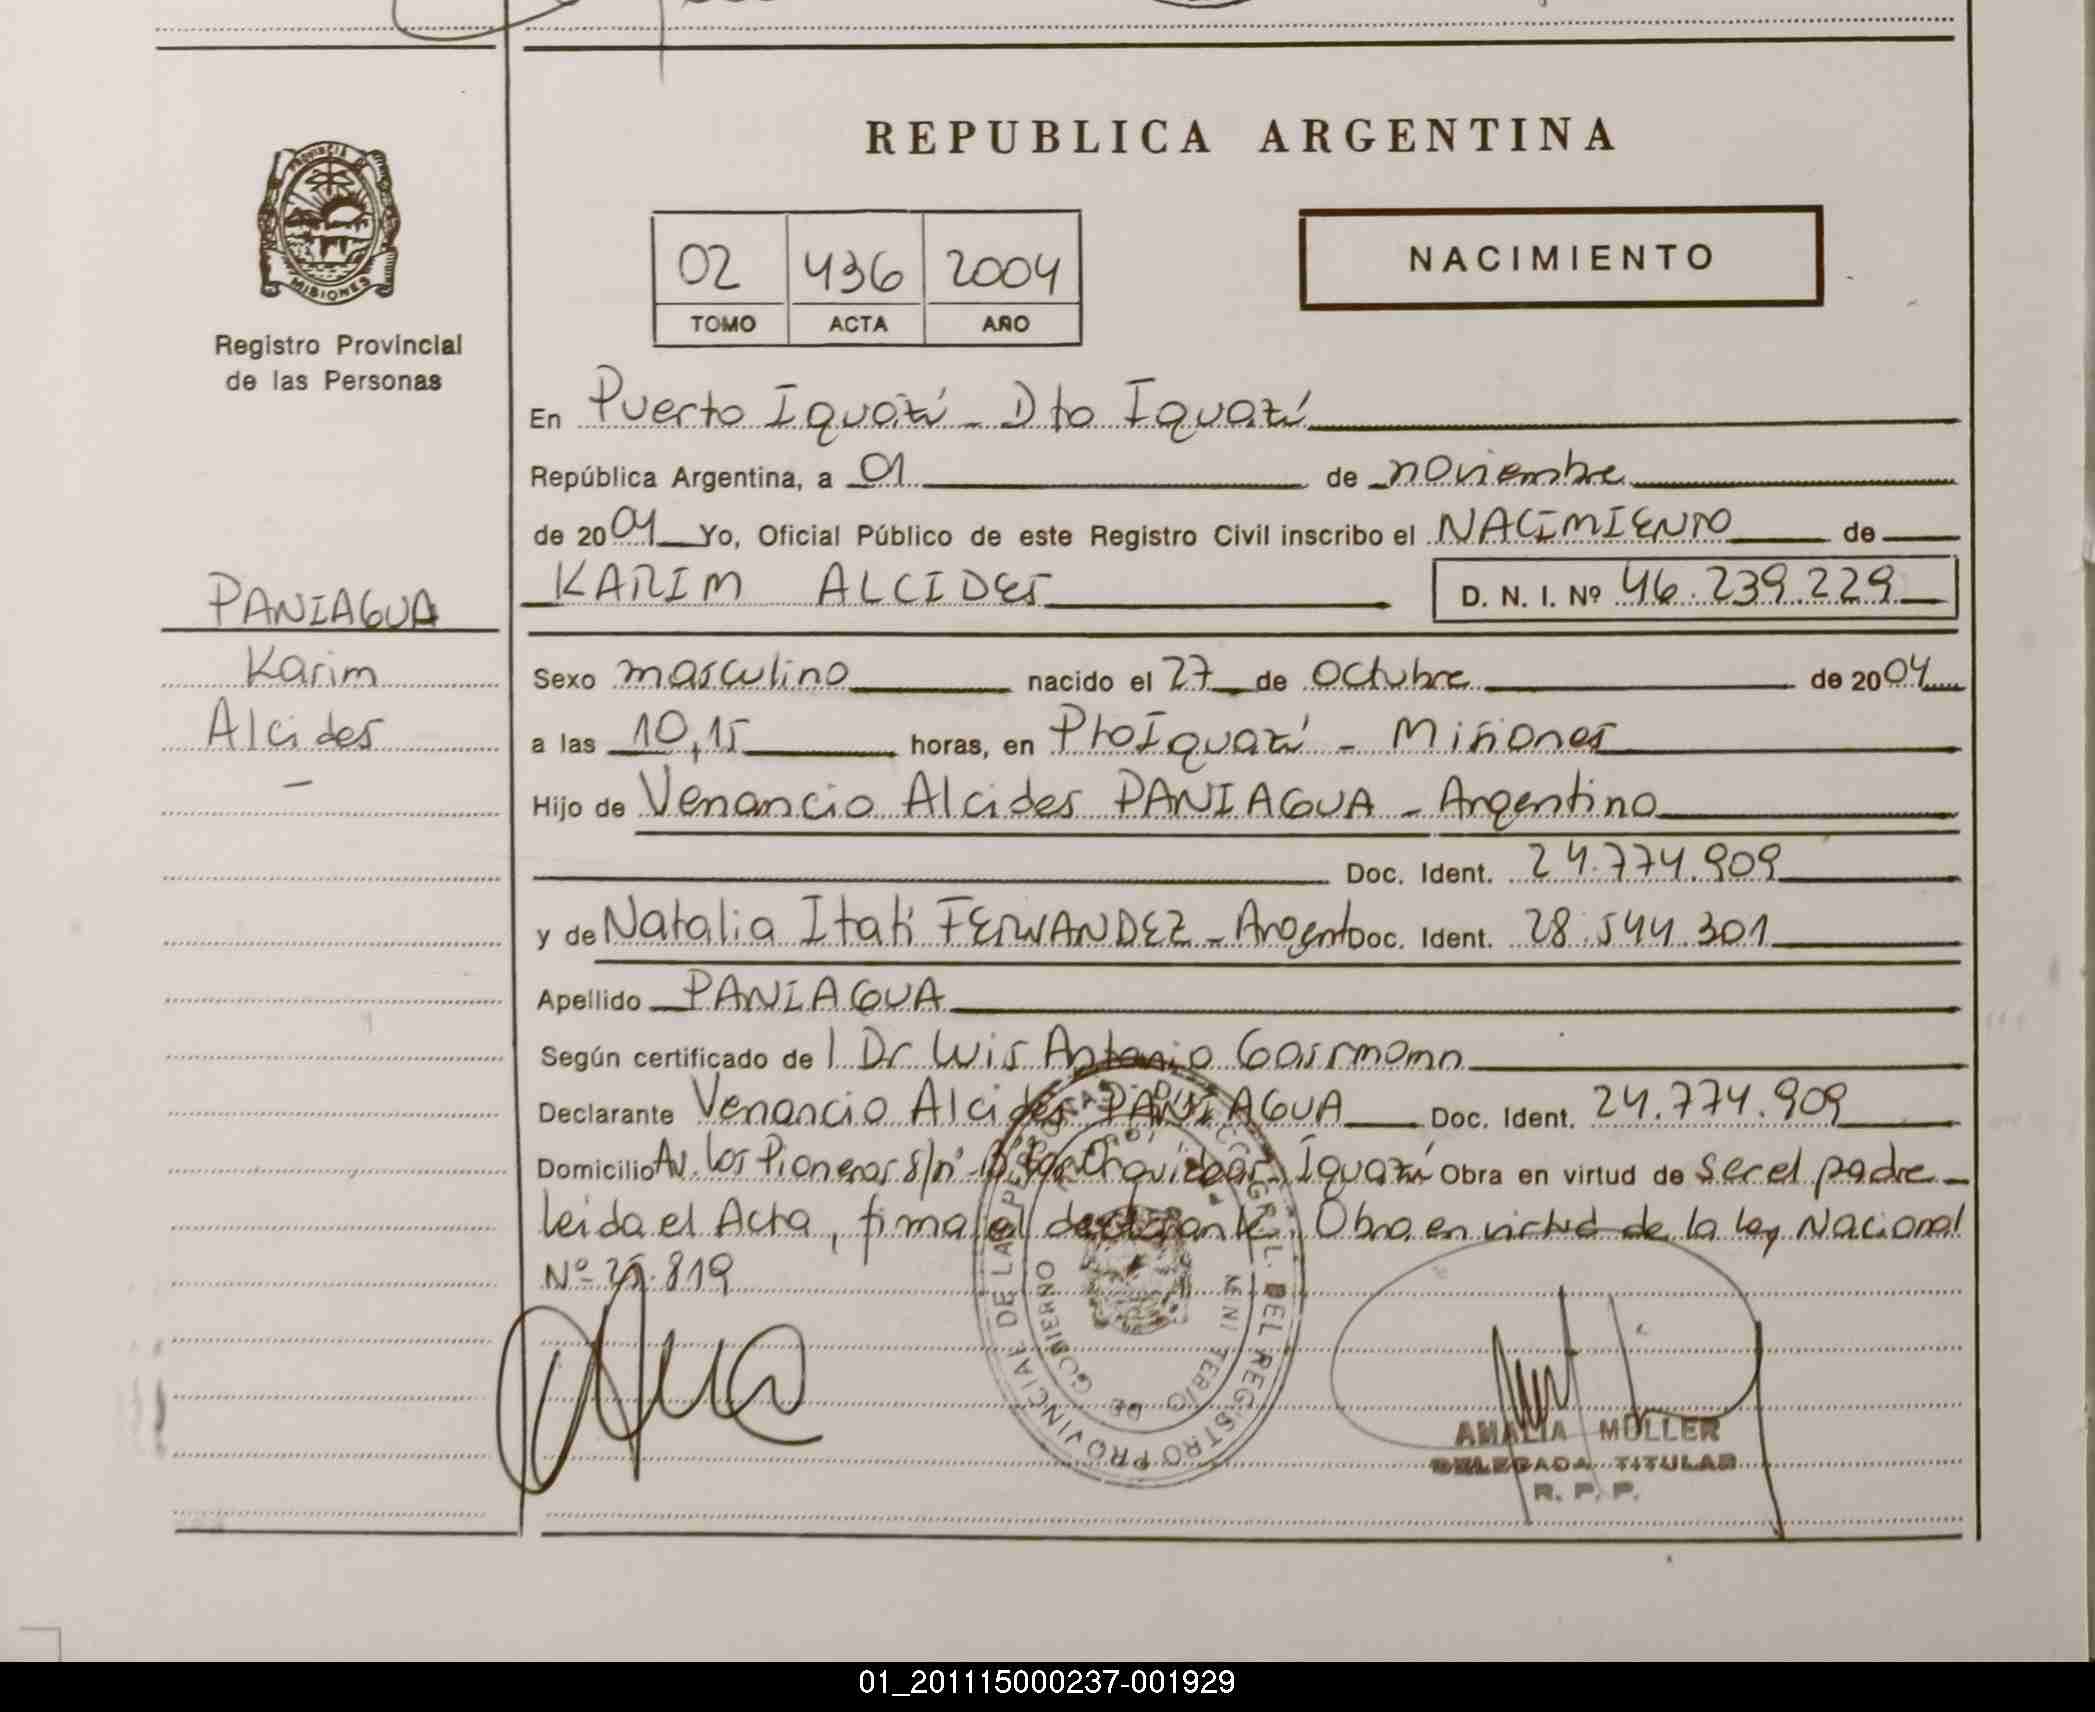 REPUBLICA ARGENTINA
PROVINCIA DE
MISIONES
Registro Provincial
de las Personas
02 436 2004
TOMO ACTA AÑO
NACIMIENTO
En Puerto Iguazú - Dto Iguazú
República Argentina, a 01 de noviembre
de 2004 Yo, Oficial Público de este Registro Civil inscribo el NACIMIENTO de
KARIM ALCIDES D. N. I. Nº 46.239.229
PANIAGUA
Karim
Alcides
Sexo masculino nacido el 27 de octubre de 2004
a las 10,15 horas, en Pto Iguazú - Misiones
Hijo de Venancio Alcides PANIAGUA - Argentino
Doc. Ident. 24.774.909
y de Natalia Itatí FERNANDEZ - Argent Doc. Ident. 28.544.301
Apellido PANIAGUA
Según certificado de l Dr Luis Antonio Gassmann
Declarante Venancio Alcides PANIAGUA Doc. Ident. 24.774.909
Domicilio Av. los Pioneros s/nº Iguazú Obra en virtud de ser el padre -
leida el Acta, firma el declarante. Obra en virtud de la ley Nacional
Nº 25.819
REGISTRO PROVINCIAL DE LAS PERSONAS
MINISTERIO DE GOBIERNO
AMALIA MÜLLER
DELEGADA TITULAR
R. P. P.
01_201115000237-001929